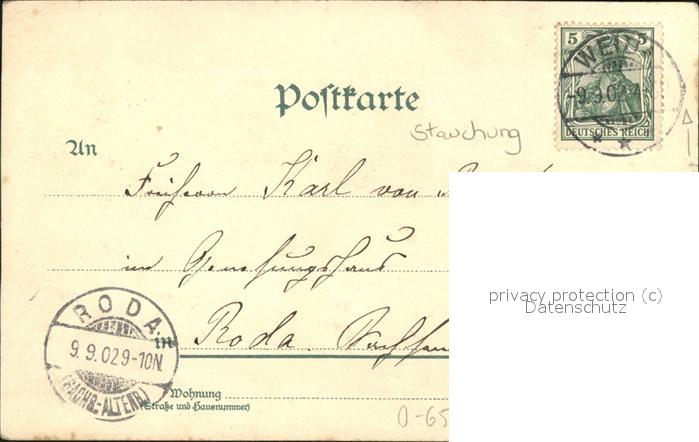 5 5
WEID
9.9.02.
DEUTSCHES REICH
Postkarte
Stauchung
An
Freiherrn Karl von
im Genesungshaus
RODA
9.9.02.9-10N.
(SACHS.-ALTENB.)
in Roda. Sachsen
Wohnung
(Straße und Hausnummer)
privacy protection (c)
Datenschutz
0-65